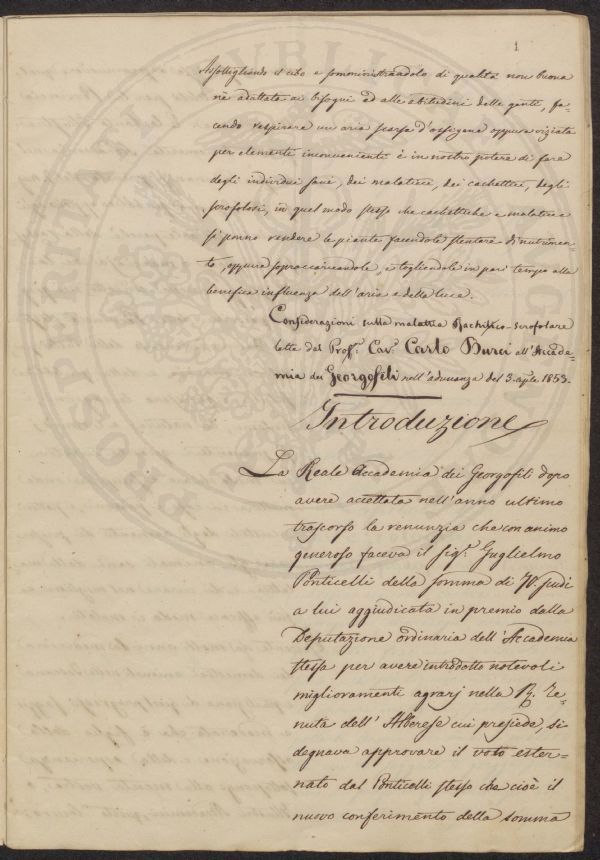 1
Assottigliando il cibo e somministrandolo di qualità non buona
nè adattata ai bisogni ed alle abitudini delle genti, fa-
cendo respirare un aria scarsa d'ossigene oppure viziata
per elementi inconvenienti è in nostro potere di fare
degli individui sani, dei malaticci, dei cachettici, degli
scrofolosi, in quel modo stesso che cachettiche e malaticce
si ponno rendere le piante facendole stentare di nutrimen-
to, oppure sopraccaricandole, e togliendole in pari tempo alla
benefica influenza dell'aria e della luce.
Considerazioni sulla malattia Rachitico-scrofolare
lette dal Proff.e Cav.e Carlo Burci all'Accade-
mia dei Georgofili nell'adunanza del 3. aple 1853.
Introduzione
La Reale Accademia dei Georgofili dopo
avere accettata nell'anno ultimo
trascorso la renunzia che con animo
generoso faceva il sig.r Guglielmo
Ponticelli della somma di 70. scudi
a lui aggiudicata in premio dalla
Deputazione ordinaria dell'Accademia
stessa per avere introdotto notevoli
miglioramenti agrarj nella R. Te-
nuta dell'Alberese cui presiede, si
degnava approvare il voto ester-
nato dal Ponticelli stesso che cioè il
nuovo conferimento della somma
PROSPERITÀ PUBLICA